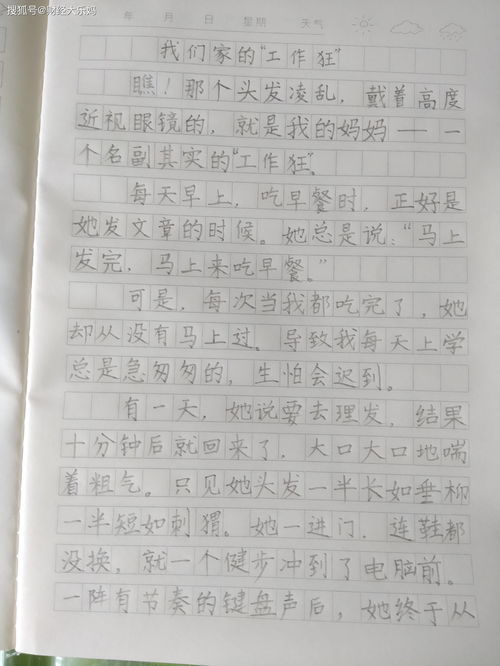 搜狐号@财经大乐妈
年 月 日 星期 天气
我们家的“工作狂”
瞧！那个头发凌乱，戴着高度
近视眼镜的，就是我的妈妈——一
个名副其实的“工作狂”。
每天早上，吃早餐时，正好是
她发文章的时候。她总是说：“马上
发完，马上来吃早餐。”
可是，每次当我都吃完了，她
却从没有马上过。导致我每天上学
总是急匆匆的，生怕会迟到。
有一天，她说要去理发，结果
十分钟后就回来了，大口大口地喘
着粗气。只见她头发一半长如垂柳
一半短如刺猬。她一进门，连鞋都
没换，就一个健步冲到了电脑前。
一阵有节奏的键盘声后，她终于从